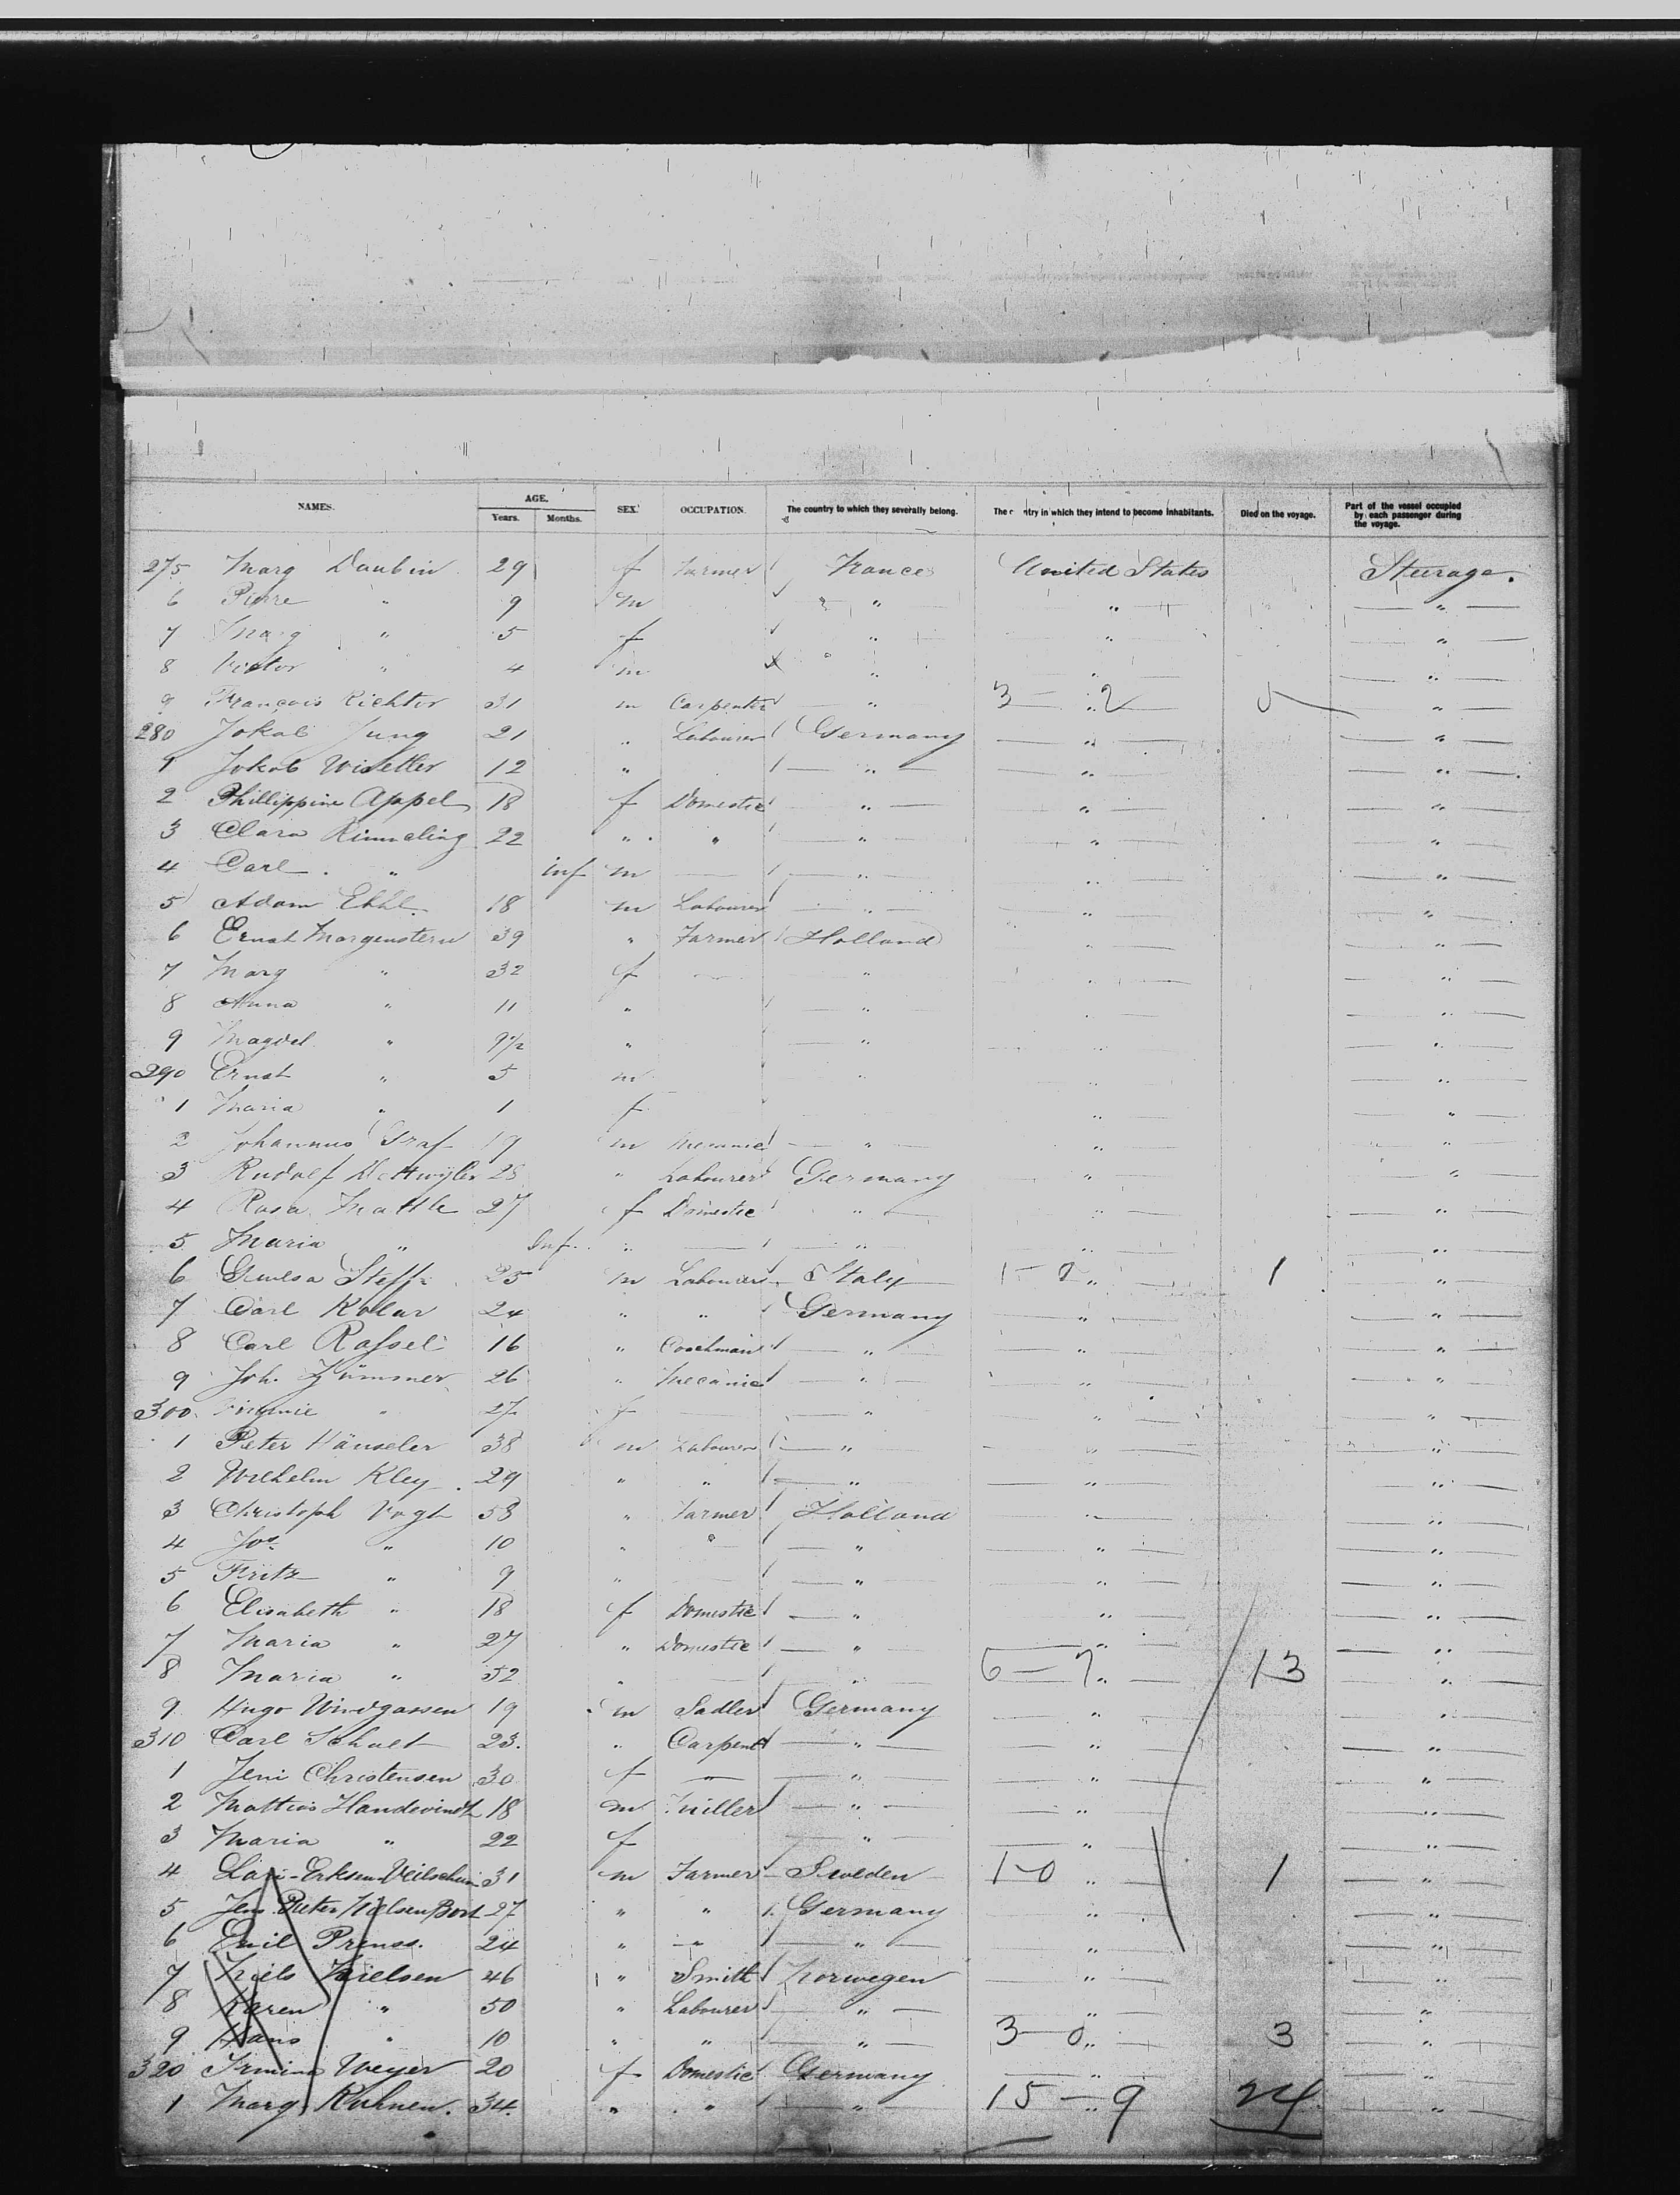 NAMES. AGE. Years. Months. SEX. OCCUPATION. The country to which they severally belong. The country in which they intend to become inhabitants. Died on the voyage. Part of the vessel occupied by each passenger during the voyage.
275 Marg Daubin 29 f Farmer France United States Steerage.
6 Pierre " 9 m " " "
7 Marg " 5 f " " "
8 Victor " 4 m " " "
9 François Richter 31 m Carpenter " 3 - 2 5 "
280 Jokob Jung 21 " Labourer Germany " "
1 Jokob 12 " " " "
2 Phillippine Appel 18 f Domestic " " "
3 Clara Rimmeling 22 " " " " "
4 Carl " inf m " " "
5 Adam 18 m Labourer " " "
6 Ernst Morgenstern 39 " Farmer Holland " "
7 Marg " 32 f " " "
8 Anna " 11 " " " "
9 Magdel " 9½ " " " "
290 Ernst " 5 m " " "
1 Maria " 1 f " "
2 Johannus Graf 19 m Mecanic " " "
3 Rudolf 28 " Labourer Germany " "
4 Rosa Mattle 27 f Domestic " " "
5 Maria " Inf. " " " "
6 Steffi 25 m Labourer Italy 1 - 0 " 1 "
7 Carl Kollar 24 " " Germany " "
8 Carl Rassel 16 " Coachman " " "
9 Joh. Zümmer 26 " Mecanic " " "
300 " 27 f " " "
1 Peter Hänseler 38 m Labourer " " "
2 Wilhelm Kley 29 " " " " "
3 Christoph Vogt 53 " Farmer Holland " "
4 Jos. " 10 " " " " "
5 Fritz " 9 " " " "
6 Elisabeth " 18 f Domestic " " "
7 Maria " 27 " Domestic " " "
8 Maria " 52 " " 6 - 7 " 13 "
9 Hugo Windgassen 19 m Sadler Germany " "
310 Carl Schult 23. " Carpent " " "
1 Jeni Christensen 30 f " " " "
2 Mattias Handewindt 18 m Miller " " "
3 Maria " 22 f " " "
4 31 m Farmer Sweden 1-0 " 1 "
5 Jens Peter Nielsen 27 " " Germany " "
6 Emil Preuss. 24 " " " " "
7 Niels Nielsen 46 " Smith Norwegen " "
8 Karen " 50 " Labourer " " "
9 Hans " 10 " " " 3 - 0 " 3 "
320 Irmina Weyer 20 f Domestic Germany " "
1 Marg. Kuhnen. 34. " " " 15 - 9 24 "